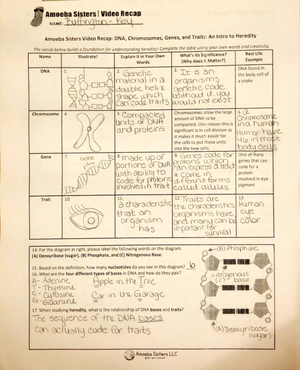 Amoeba Sisters | Video Recap
NAME: Buffington - Key
Amoeba Sisters Video Recap- DNA, Chromosomes, Genes, and Traits: An Intro to Heredity
The vocab below builds a foundation for understanding heredity! Complete the table using your own words and creativity.
Name
Illustrate!
Explain It in Your Own Words
What's Its Significance? (Why does it Matter?)
Real Life Example
DNA
1.
2. Genetic material in a double helix shape which can code traits
3. It is an organisms genetic code without it you would not exist
DNA found in the body cell of a snake
Chromosome
4.
5. Compacted units of DNA and proteins
Chromosomes allow the large amount of DNA to be compacted. One reason this is significant is in cell division as it makes it much easier for the cells to put these units into the new cells.
6. A Chromosome in a human. Humans have 46 in most body cells
Gene
7. gene
8. made up of portions of DNA with ability to code for proteins involved in trait
9. Genes code for proteins which can express a trait come in different forms called alleles
One of many genes that can code for a protein involved in eye pigment
Trait
10.
11. a characteristic that an organism has
12. Traits are the characteristics organisms have, and many can be important for survival
13. Human eye color
14. For the diagram at right, please label the following words on the diagram.
(A) Deoxyribose (sugar), (B) Phosphate, and (C) Nitrogenous Base.
15. Based on the definition, how many nucleotides do you see in this diagram? 6
16. What are the four different types of bases in DNA and how do they pair?
A - Adenine Apple in the Tree
T - Thymine
C - Cytosine Car in the Garage
G - Guanine
17. When studying heredity, what is the relationship of DNA bases and traits?
The sequence of the DNA bases
can actually code for traits
(B) Phosphate
nitrogenous
(C) base
(A) Deoxyribose
(sugar)
Amoeba Sisters LLC